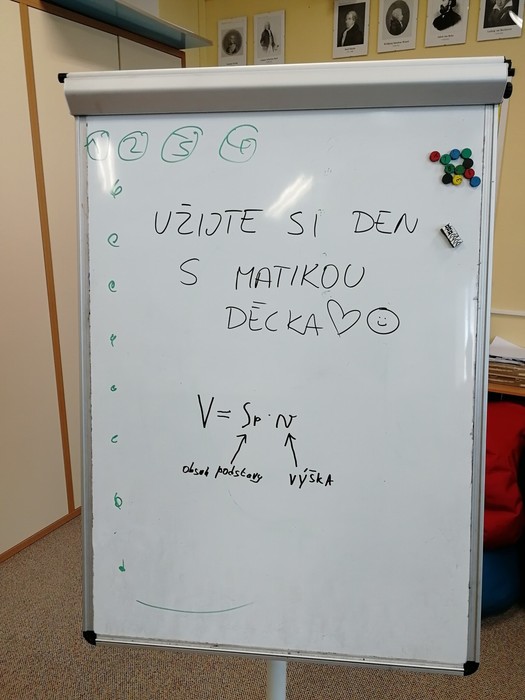 1 2 3 4
b
c
c
UŽIJTE SI DEN
S MATIKOU
DĚCKA
V = Sp · v
obsah podstavy VÝŠKA
c
b
d